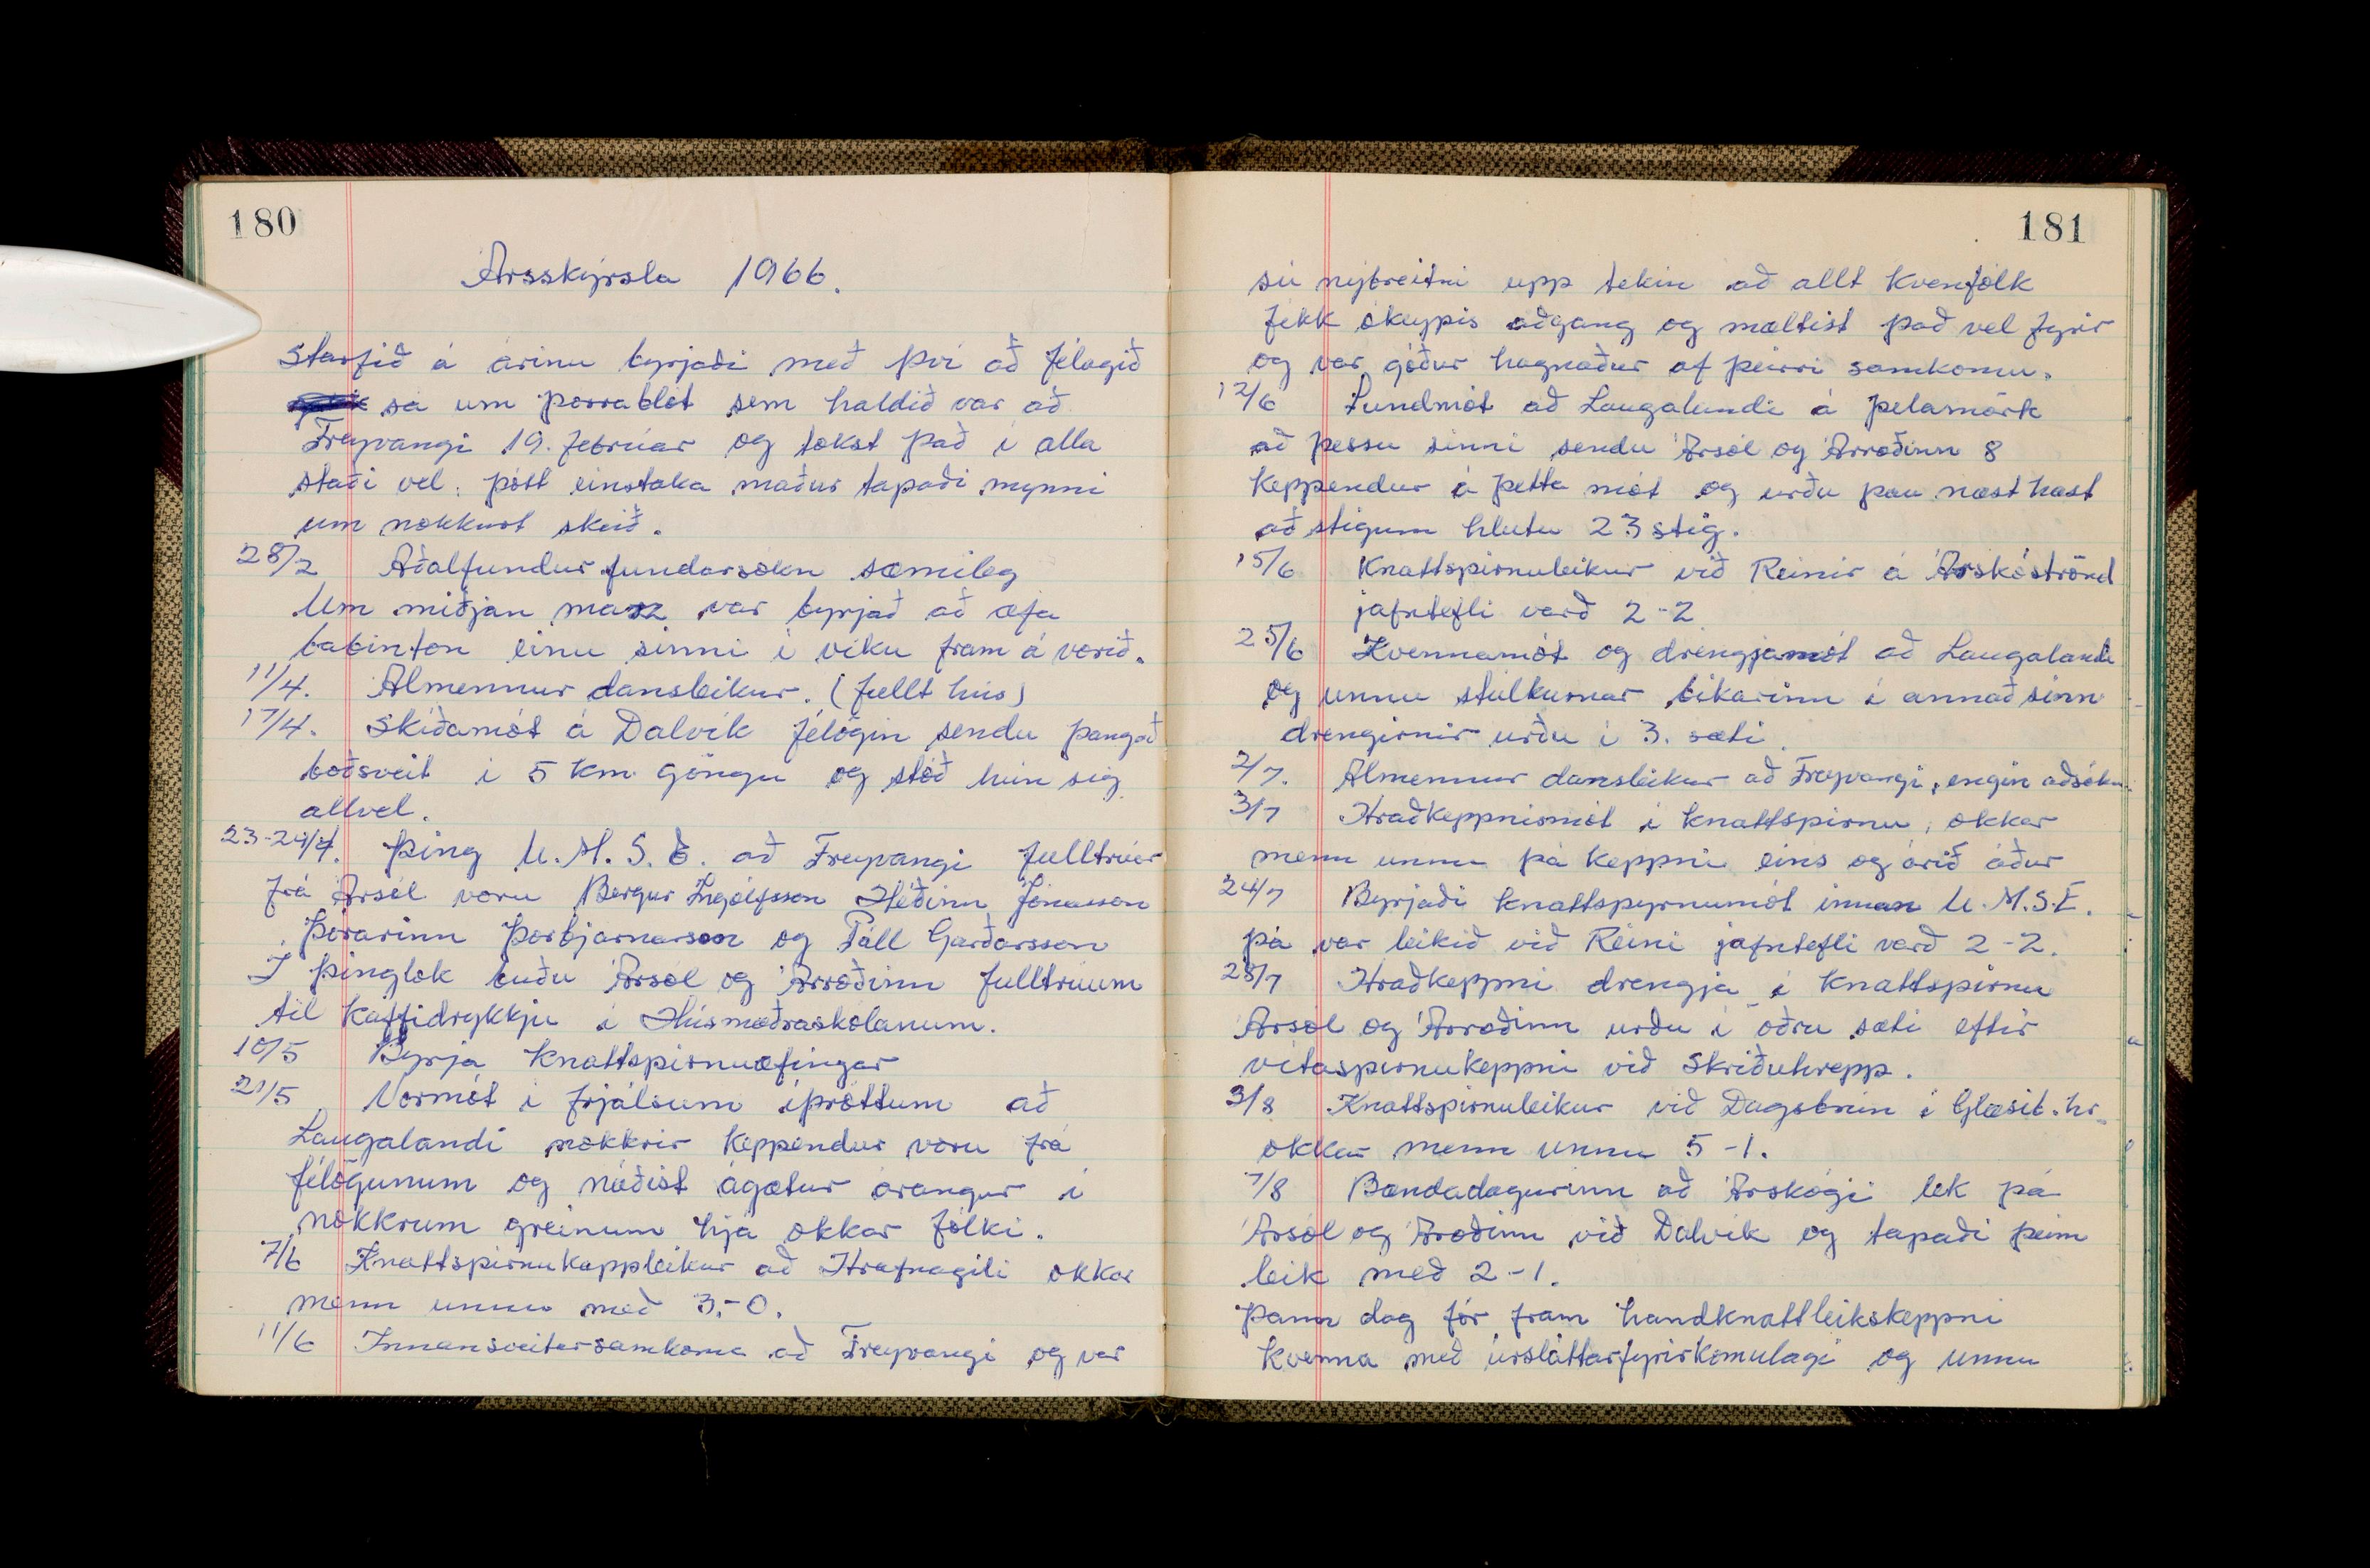 180
Ársskýrsla 1966.
Starfið á árinu byrjaði með því að félagið
sá um þorrablót sem haldið var að
Freyvangi 19. febrúar og tókst það í alla
staði vel. þótt einstaka maður tapaði mynni
um nokkurt skeið.
28/2 Aðalfundur fundarsókn sæmileg
Um miðjan marz var byrjað að æfa
babinton einu sinni í viku fram á vorið.
11/4. Almennur dansleikur. (fullt hús)
17/4. Skíðamót á Dalvík félögin sendu þangað
boðsveit í 5 km göngu og stóð hún sig
allvel.
23-24/4. Þing U.M.S.E. að Freyvangi fulltrúar
frá Ársól voru Bergur Ingólfsson Héðinn Jónasson
Þórarinn Þorbjarnarson og Páll Garðarsson
Í þinglok buðu Ársól og Árroðinn fulltrúum
til kaffidrykkju í Húsmæðraskólanum.
10/5 Byrja knattspirnuæfingar
21/5 Vormót í frjálsum íþróttum að
Laugalandi nokkrir keppendur voru frá
félögunum og náðist ágætur árangur í
nokkrum greinum hjá okkar fólki.
7/6 Knattspirnukappleikur að Hrafnagili okkar
menn unnu með 3-0.
11/6 Innansveitarsamkoma að Freyvangi og var
181
sú nýbreitni upp tekin að allt kvenfólk
fékk ókeypis aðgang og mæltist það vel fyrir
og var góður hagnaður af þeirri samkomu.
12/6 Sundmót að Laugalandi á Þelamörk
að þessu sinni sendu Ársól og Árroðinn 8
keppendur á þetta mót og urðu þau næst hæst
að stigum hlutu 23 stig.
15/6 Knattspirnuleikur við Reinir á Árskóströnd
jafntefli varð 2-2
25/6 Kvennamót og drengjamót að Laugalandi
og unnu stúlkurnar bikarinn í annað sinn
drengirnir urðu í 3. sæti.
2/7. Almennur dansleikur að Freyvangi, engin aðsókn.
3/7 Hraðkeppnismót í knattspirnu, okkar
menn unnu þá keppni eins og árið áður
24/7 Byrjaði knattspyrnumót innan U.M.S.E.
þá var leikið við Reini jafntefli varð 2-2.
28/7 Hraðkeppni drengja í knattspirnu
Ársól og Árroðinn urðu í öðru sæti eftir
vítaspirnukeppni við Skriðuhrepp.
3/8 Knattspirnuleikur við Dagsbrún í Glæsib.hr.
okkar menn unnu 5-1.
7/8 Bændadagurinn að Árskógi lék þá
Ársól og Árroðinn við Dalvík og tapaði þeim
leik með 2-1.
Þann dag fór fram handknattleikskeppni
kvenna með úrsláttarfyrirkomulagi og unnu